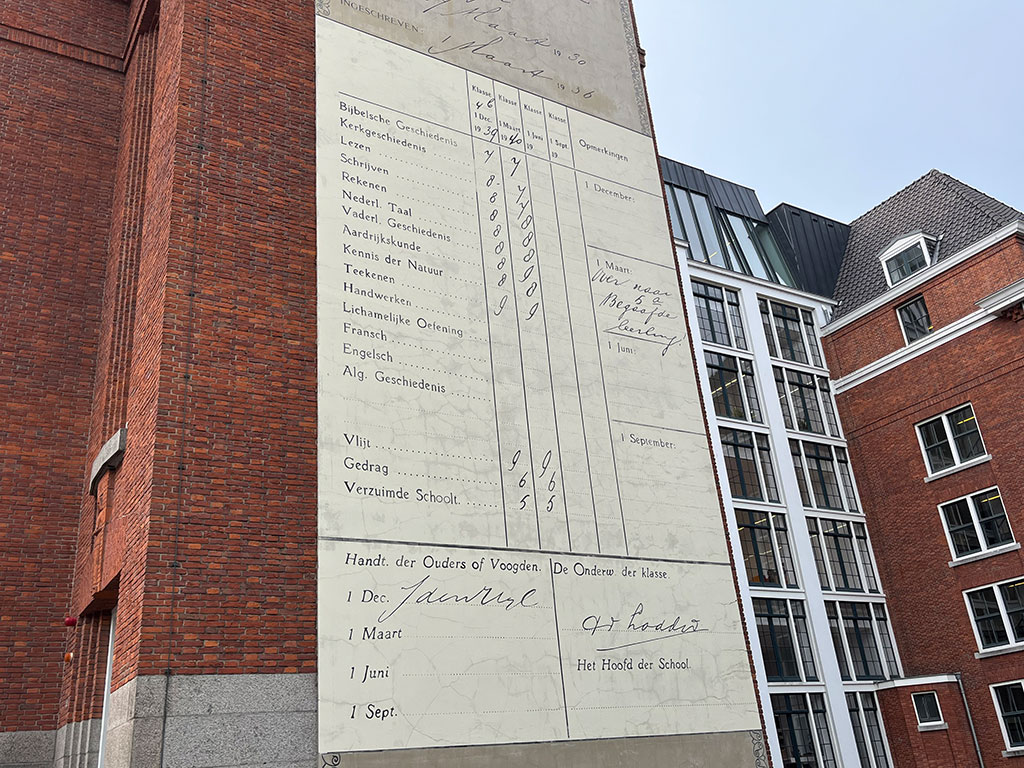 INGESCHREVEN:
Maart 1930
1 Maart 1936
Klasse Klasse Klasse Klasse
4 6
1 Dec. 1 Maart 1 Juni 1 Sept.
1939 1940 19 19
Opmerkingen
Bijbelsche Geschiedenis
Kerkgeschiedenis
Lezen 7 7
Schrijven 8
Rekenen 8 7
Nederl. Taal 8 7
Vaderl. Geschiedenis 8 8
Aardrijkskunde 8 8
Kennis der Natuur 8 8
Teekenen 8 9
Handwerken 8
Lichamelijke Oefening 9 9
Fransch
Engelsch
Alg. Geschiedenis
Vlijt 9 9
Gedrag 6 6
Verzuimde Schoolt. 5 5
1 December:
1 Maart:
Over naar
5a
Begaafde
leerling!
1 Juni:
1 September:
Handt. der Ouders of Voogden.
1 Dec. J den Uyl
1 Maart
1 Juni
1 Sept.
De Onderw. der klasse.
Het Hoofd der School.